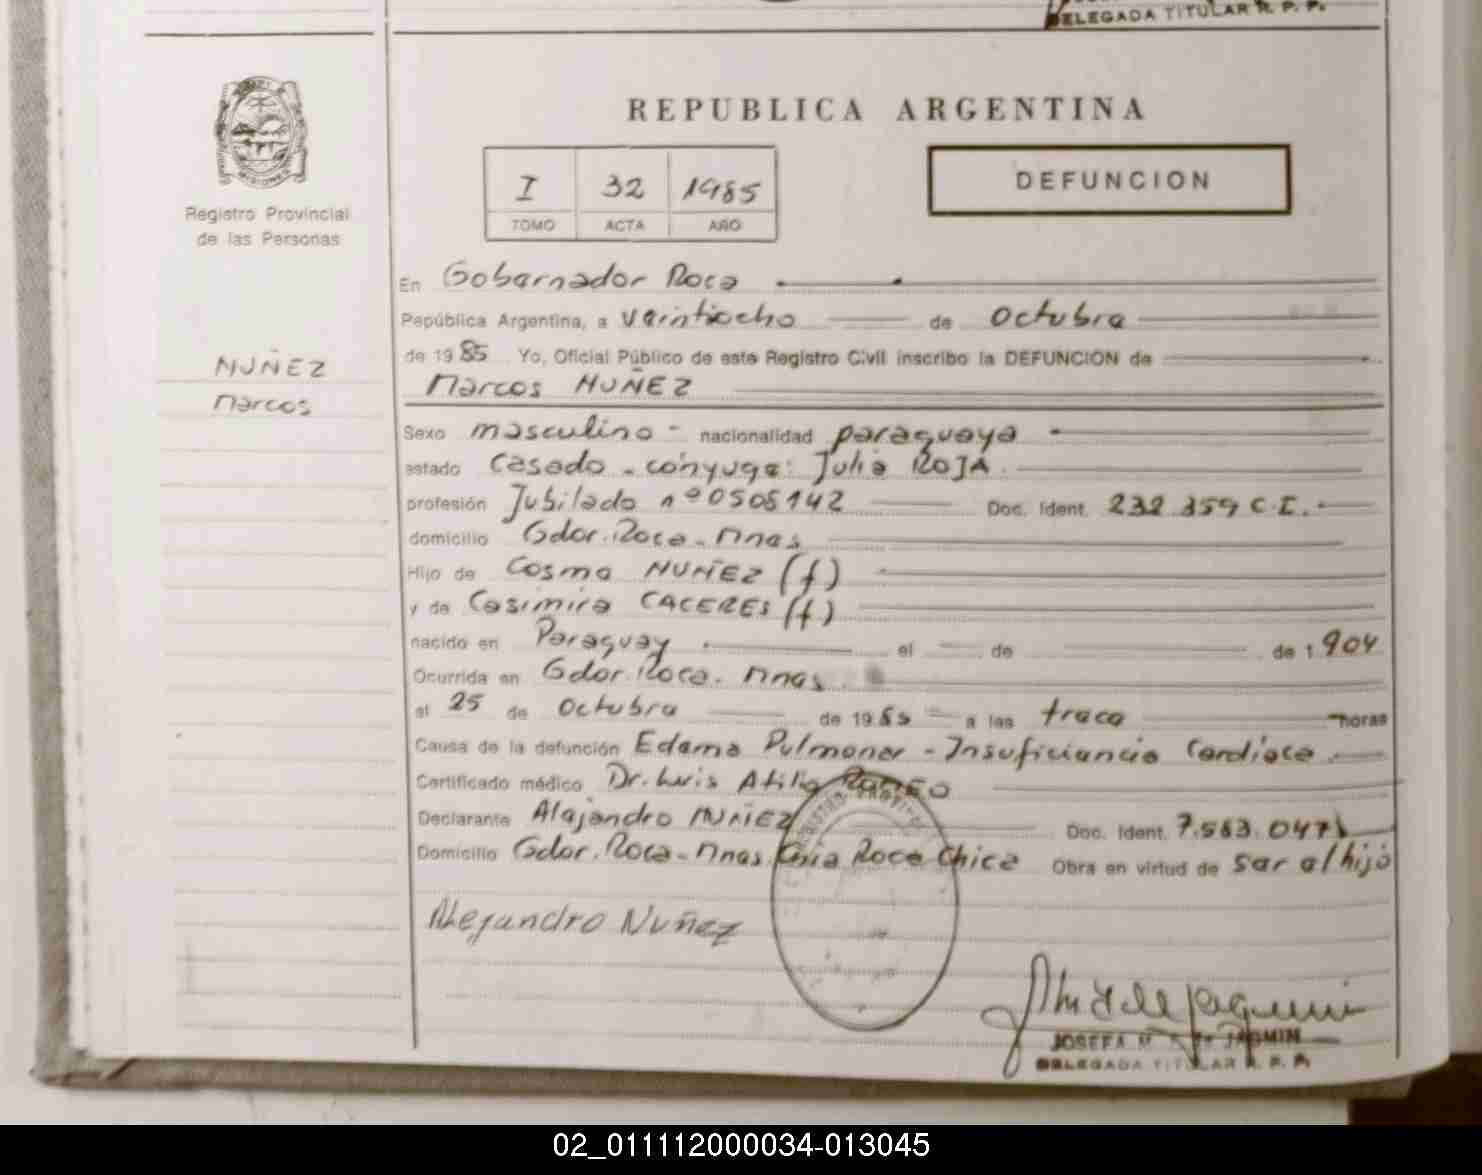 DELEGADA TITULAR R. P. P.
REPUBLICA ARGENTINA
I 32 1985
TOMO ACTA AÑO
DEFUNCION
MISIONES
Registro Provincial
de las Personas
NUÑEZ
Marcos
En Gobernador Roca
República Argentina, a veintiocho de Octubre
de 1985 Yo, Oficial Público de este Registro Civil inscribo la DEFUNCION de
Marcos NUÑEZ
Sexo masculino - nacionalidad paraguaya
estado Casado - cónyuge: Julia ROJA
profesión Jubilado nº 0508142 Doc. Ident. 232.359 C.I.
domicilio Gdor. Roca - Mnes
Hijo de Cosme NUÑEZ (f)
y de Casimira CACERES (f)
nacido en Paraguay el de de 1904
Ocurrida en Gdor. Roca - Mnes
el 25 de Octubre de 1985 a las trece horas
Causa de la defunción Edema Pulmonar - Insuficiencia Cardíaca
Certificado médico Dr. Luis Atilio
Declarante Alejandro NUÑEZ Doc. Ident. 7.583.047
Domicilio Gdor. Roca - Mnes. Cnia Roca Chica Obra en virtud de ser el hijo
Alejandro Nuñez
JOSEFA M DELEGADA TITULAR R. P. P.
02_011112000034-013045